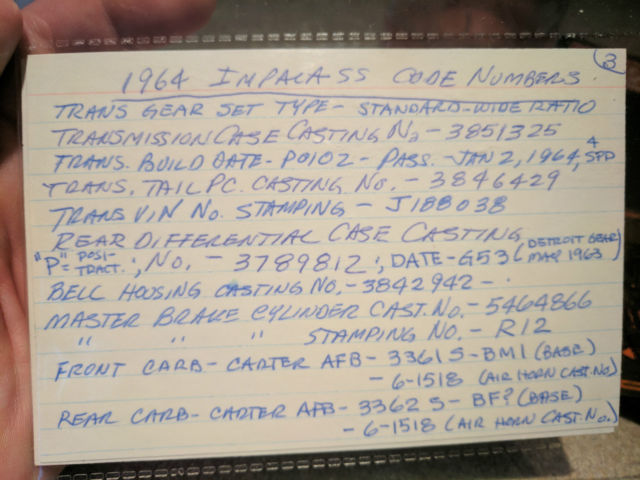 3
1964 IMPALA SS CODE NUMBERS
TRANS GEAR SET TYPE - STANDARD-WIDE RATIO
TRANSMISSION CASE CASTING No - 3851325
TRANS. BUILD DATE - P0102 - PASS. - JAN 2, 1964, 4 SPD
TRANS. TAIL PC. CASTING No. - 3846429
TRANS VIN No. STAMPING - J188038
REAR DIFFERENTIAL CASE CASTING
"P" = POSI-TRACT. ; No. - 3789812 ; DATE - G53 (DETROIT GEAR) 1963
BELL HOUSING CASTING No. - 3842942 -
MASTER BRAKE CYLINDER CAST. No. - 5464866
" " " STAMPING No. - R12
FRONT CARB - CARTER AFB - 3361 S - BM1 (BASE)
- 6-1518 (AIR HORN CAST. No.)
REAR CARB - CARTER AFB - 3362 S - BF? (BASE)
- 6-1518 (AIR HORN CAST. No.)